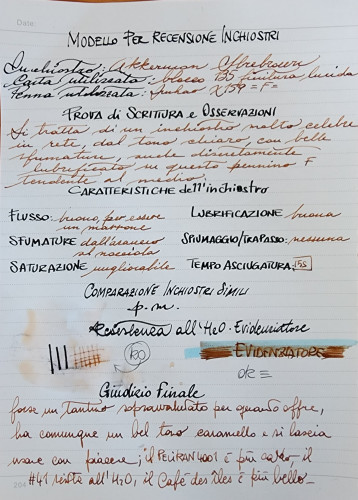 Date
MODELLO PER RECENSIONE INCHIOSTRI
Inchiostro: Akkerman Offrebrown
Carta utilizzata: blocco B5 finitura lucida
Penna utilizzata: Jinhao X159 =F=
PROVA di SCRITTURA e OSSERVAZIONI
Si tratta di un inchiostro molto celebre
in rete, dal tono chiaro, con belle
sfumature, anche discretamente
lubrificato su questo pennino F
tendente al medio.
CARATTERISTICHE dell'inchiostro
FLUSSO: buono, per essere un marrone
LUBRIFICAZIONE: buona
SFUMATURE dall'arancio al nocciola
SPIUMAGGIO/TRAPASSO: nessuna
SATURAZIONE migliorabile
TEMPO ASCIUGATURA: 15s
COMPARAZIONE INCHIOSTRI SIMILI
p.m.
Resistenza all'H2O - Evidenziatore
KO
EVIDENZIATORE
OK =
Giudizio Finale
forse un tantino sopravvalutato per quanto offre,
ha comunque un bel tono caramello e si lascia
usare con piacere; il PELIKAN 4001 è più caldo, il
#41 resiste all'H2O, il Café des îles è più bello
204